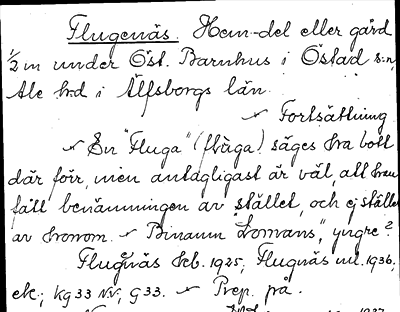 Flugenäs. Hem-del eller gård
1/2 m under Öst. Barnhus i Östad s:n,
Ale h:d i Älfsborgs län.
Fortsättning
En "Fluga" (flŭga) säges ha bott
där förr, men antagligast är väl, att han
fått benämningen av stället, och ej stället
av honom. Binamn "Lomans," yngre?
Flugnäs Geb. 1925, Flugnäs 1936,
ek; Kg 33 NV; G 33. Prep. på.